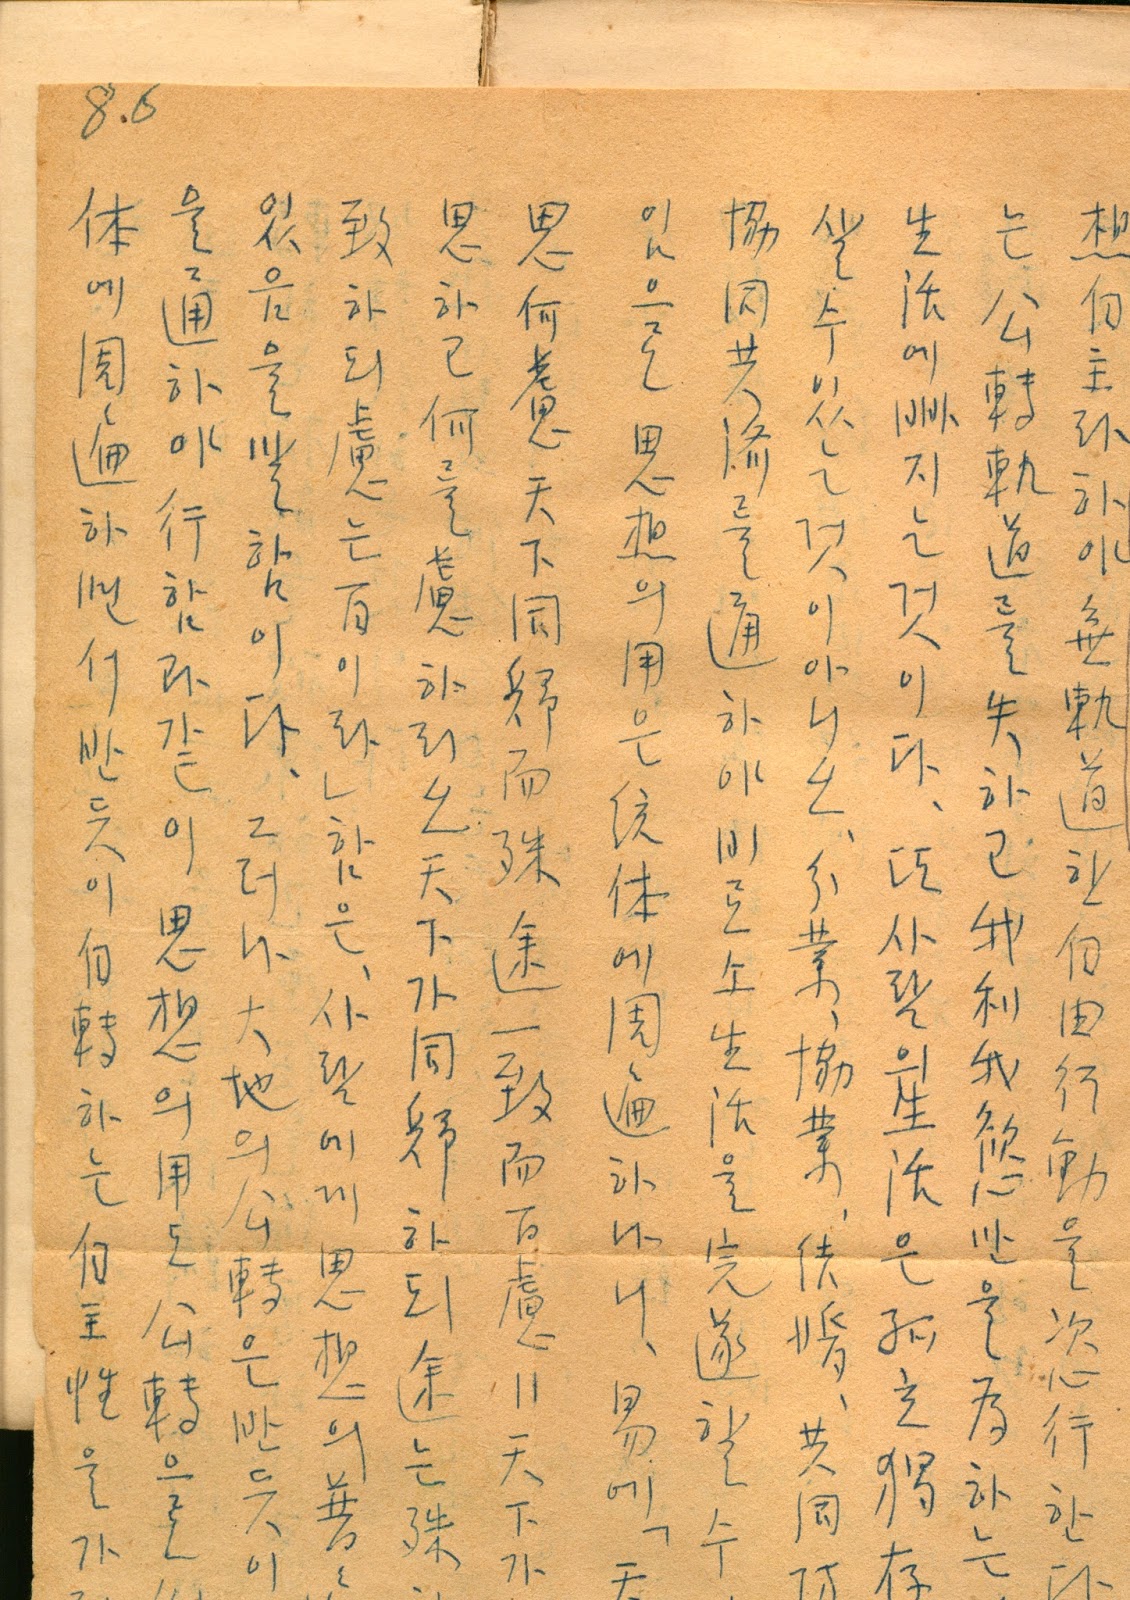 8.6
想自主라하야 無軌道한 自由行動을 恣行한다
는 公轉軌道를 失하고 我利我慾만을 爲하는
生活에 빠지는것이다、또 사람의 生活은 孤立獨存
살수있는것이아니오、分業、協業、供婚、共同
協同共濟를 通하야 비로소 生活을 完遂할수
있음으로 思想의 用은 統体에 周遍하나니、易에「天
思何慮 天下同歸而殊途 一致而百慮=天下가
思하고 何를 慮하리오 天下가 同歸하되 途는 殊
致하되 慮는 百이라」함은、사람에게 思想의 普
있음을 말함이다、그러나 大地의 公轉은 반듯이
을 通하야 行함과같이 思想의 用도 公轉으로
体에 周遍하면서 반듯이 自轉하는 自主性을 가